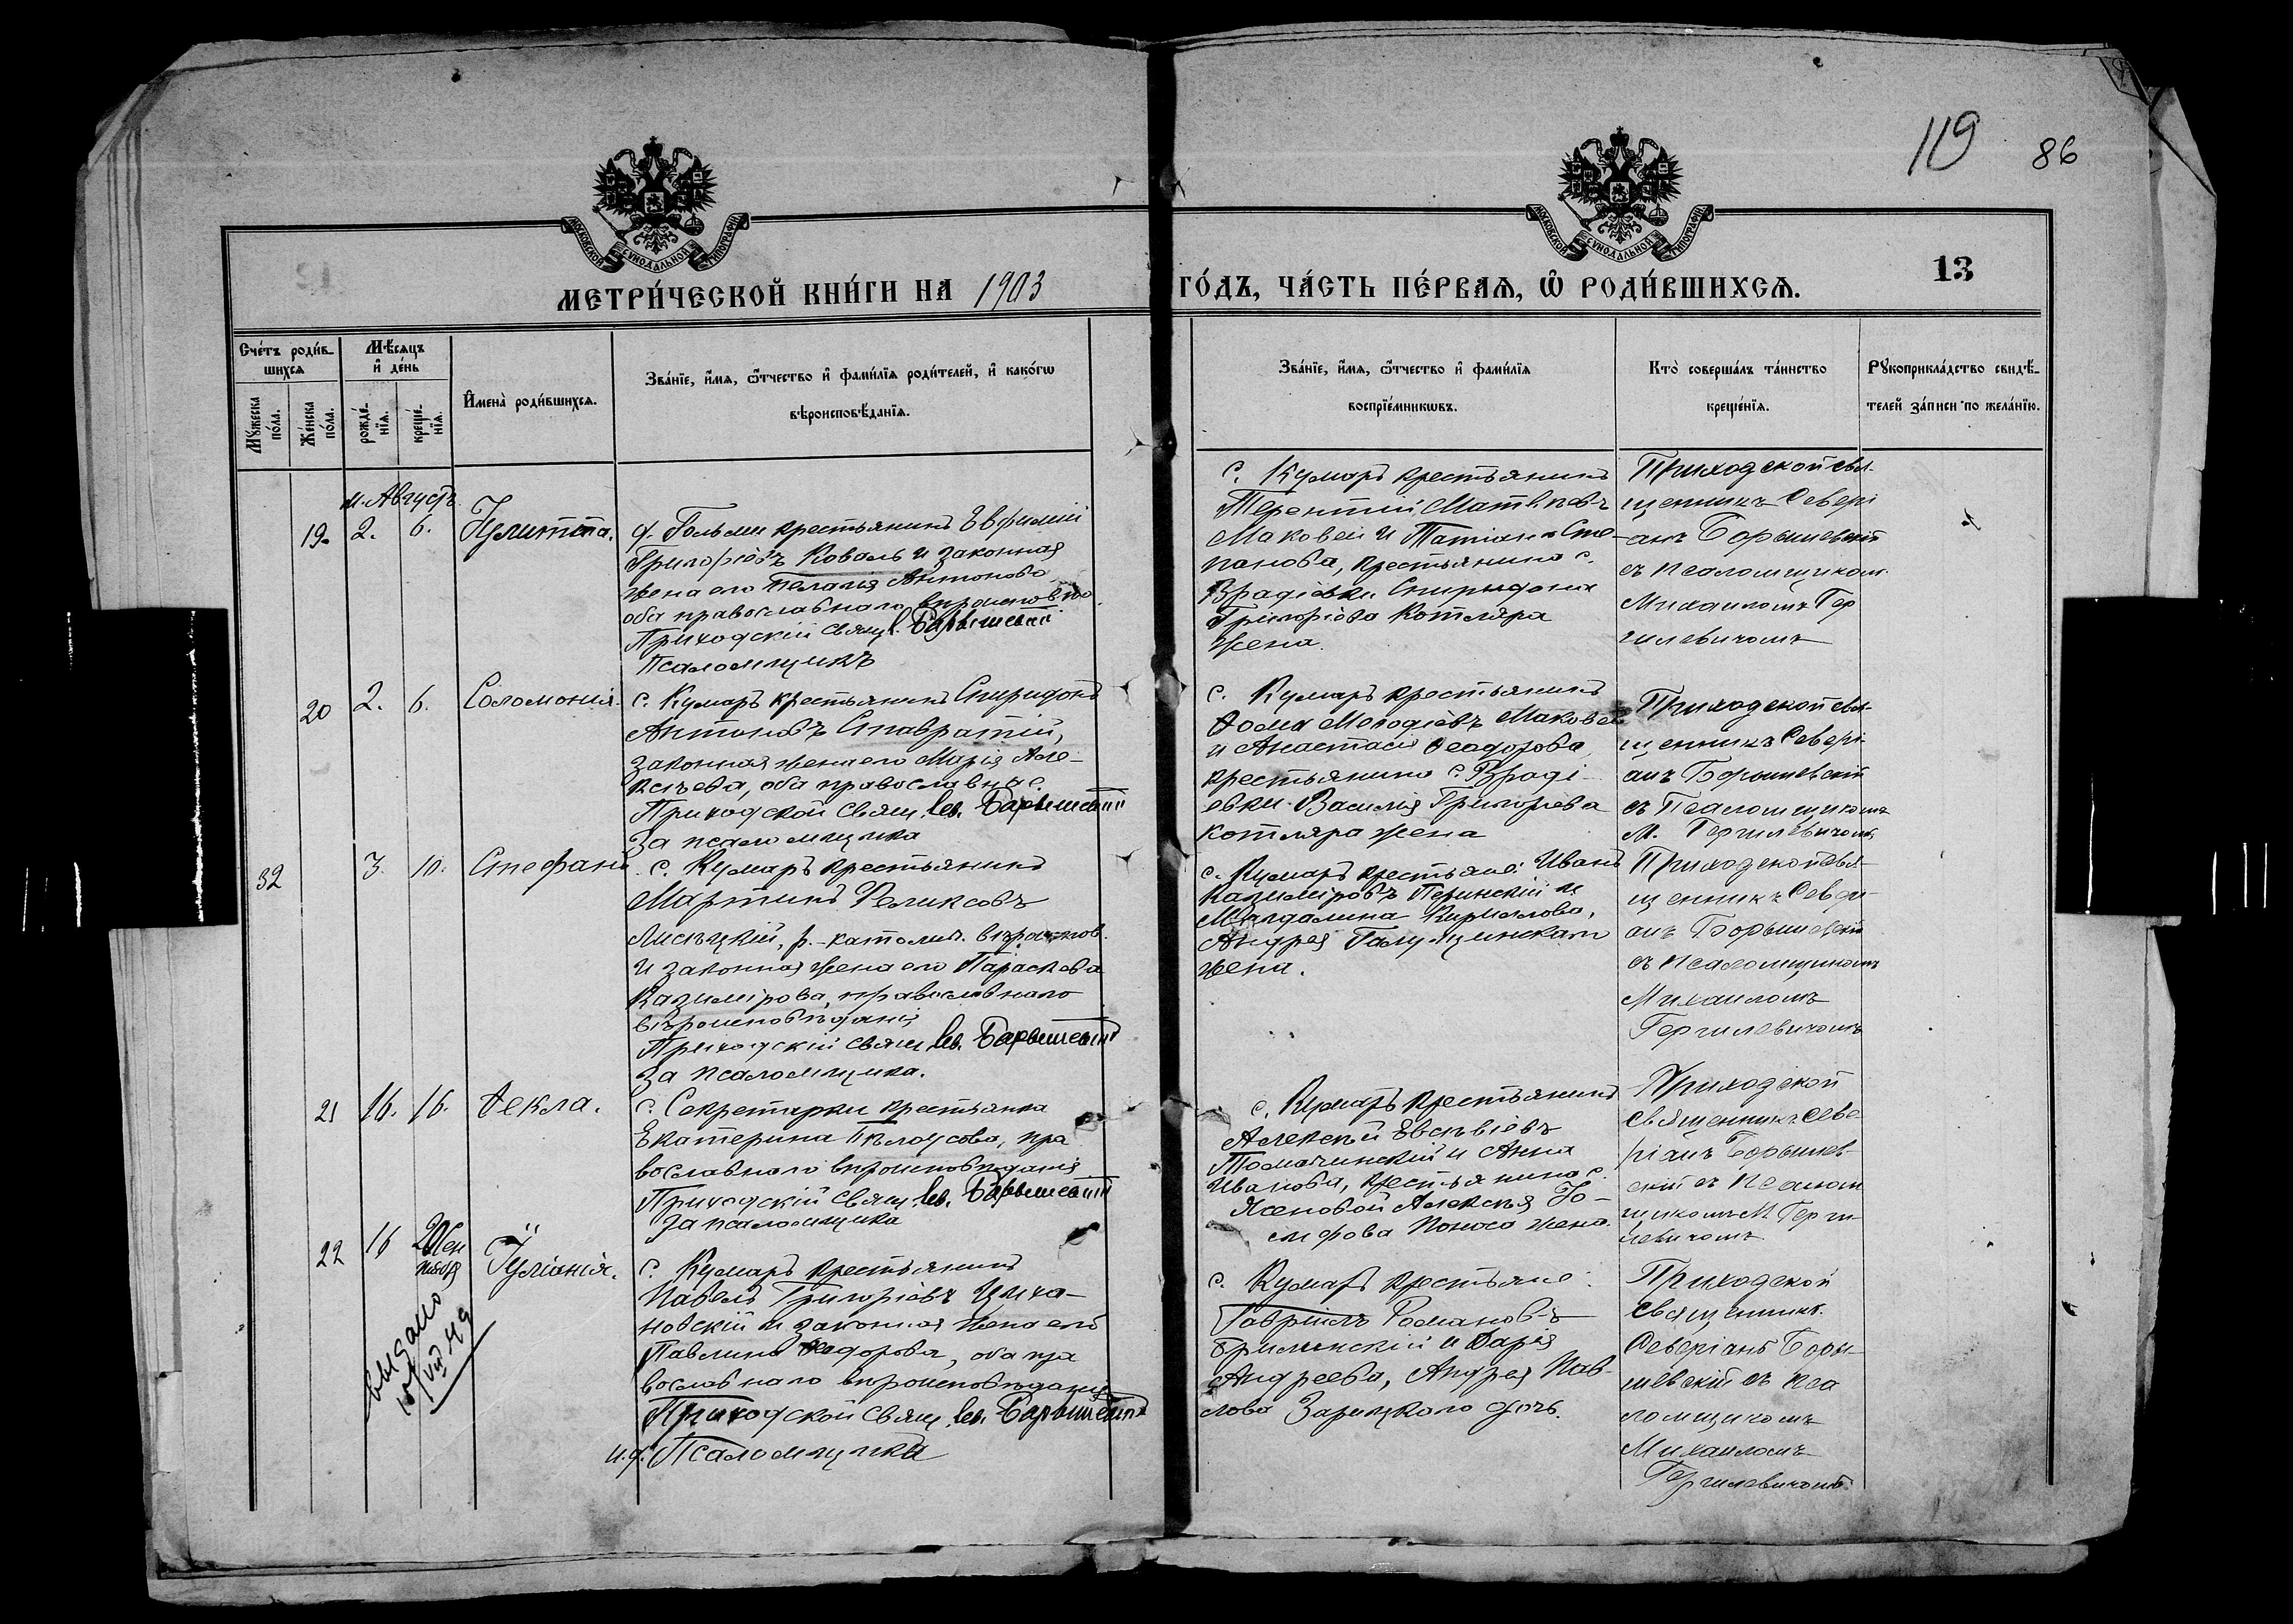 119 86
МОСКОВСКОЙ СѴНОДАЛЬНОЙ ТИПОГРАФІИ
МОСКОВСКОЙ СѴНОДАЛЬНОЙ ТИПОГРАФІИ
МЕТРИ́ЧЕСКОЙ КНИ́ГИ НА 1903 ГО́ДЪ, ЧА́СТЬ ПЕ́РВАѦ, Ѡ҆ РОДИ́ВШИХСѦ. 13
Сче́тъ роди́в-
шихсѧ
Мѣ́сѧцъ
и҆ де́нь
Мꙋ́жеска
по́ла.
Же́нска
по́ла.
рожде́-
нїѧ.
креще́-
нїѧ.
И҆мена̀ роди́вшихсѧ.
Зва́нїе, и҆́мѧ, ѻ҆́тчество и҆ фами́лїѧ роди́телей, и҆ како́гѡ
вѣроисповѣ́данїѧ.
Зва́нїе, и҆́мѧ, ѻ҆́тчество и҆ фами́лїѧ
воспрїе́мникѡвъ.
Кто̀ соверша́лъ та́инство
креще́нїѧ.
Рꙋкоприкла́дство свидѣ́-
телей за́писи по жела́нїю.
м. Августъ
19. 2. 6. Іулитта.
д. Гольмы крестьянинъ Евфимій
Григоріевъ Коваль и законная
жена его Пелагія Антонова
оба православнаго вѣроисповѣд.
Приходскій Свящ. С. Барышевскій
Псаломщикъ
с. Кумаръ крестьянинъ
Терентій Матѳѣевъ
Маковей и Татіана Сте-
панова, крестьянина с.
Врадіевки Спиридона
Григоріева Котляра
жена.
Приходской свя-
щенникъ Севері
анъ Борышевскій
съ псаломщикомъ
Михаиломъ Гер
гилевичомъ
20 2. 6. Соломонія.
с. Кумаръ крестьянинъ Спиридонъ
Антоновъ Ставратій,
законная жена его Марія Але-
ксѣева, оба православные.
Приходской Свящ. Сев. Барышевскій
За псаломщика
с. Кумаръ крестьянинъ
Ѳома Меѳодіевъ Маковей
и Анастасія Ѳеодорова
крестьянина с. Враді-
евки Василія Григорьева
Котляра жена
Приходской свя-
щенникъ Севері-
анъ Борышевскій
съ Псаломщикомъ
М. Гергилевичомъ
32 3. 10. Стефанъ
с. Кумаръ крестьянинъ
Мартинъ Феликсовъ
Лисѣцкій, р.-католич. вѣроиспов.
и законная жена его Параскева
Казимірова, православнаго
вѣроисповѣданія
Приходскій Свящ. Сев. Барышевскій
За псаломщика.
с. Кумаръ крестьяне: Иванъ
Казиміровъ Перинскій и
Магдалина Кириллова,
Андрея Галущинскаго
жена.
Приходской Свя-
щенникъ Севері-
анъ Борышевскій
съ псаломщикомъ
Михаиломъ
Гергилевичомъ
21 16. 16. Ѳекла.
с. Секретарки крестьянка
Екатерина Бѣлоусова, пра
вославнаго вѣроисповѣданія
Приходскій Свящ. Сев. Барышевскій
За псаломщика
с. Кумаръ крестьянинъ
Алексѣй Евсѣвіевъ
Томачинскій и Анна
Иванова, крестьянина с.
Ясеновой Алексѣя Іо-
сифова Поноса жена.
Приходской
Священникъ Севе
ріанъ Борышев-
скій съ псалом
щикомъ М. Герги-
левичомъ
22 16 20 Сен
тября Іуліанія.
с. Кумаръ крестьянинъ
Павелъ Григоріевъ Циха-
новскій и законная жена его
Павлина Ѳеодорова, оба пра
вославнаго вѣроисповѣданія
Приходской Свящ. Сев. Барышевскій
и.д. Псаломщика
с. Кумаръ крестьяне:
Гавріилъ Романовъ
Брилинскій и Дарія
Андреева, Андрея Пав-
лова Зарицкаго дочь.
Приходской
священникъ
Северіанъ Боры-
шевскій съ пса
ломщикомъ
Михаиломъ
Гергилевичомъ
выдано